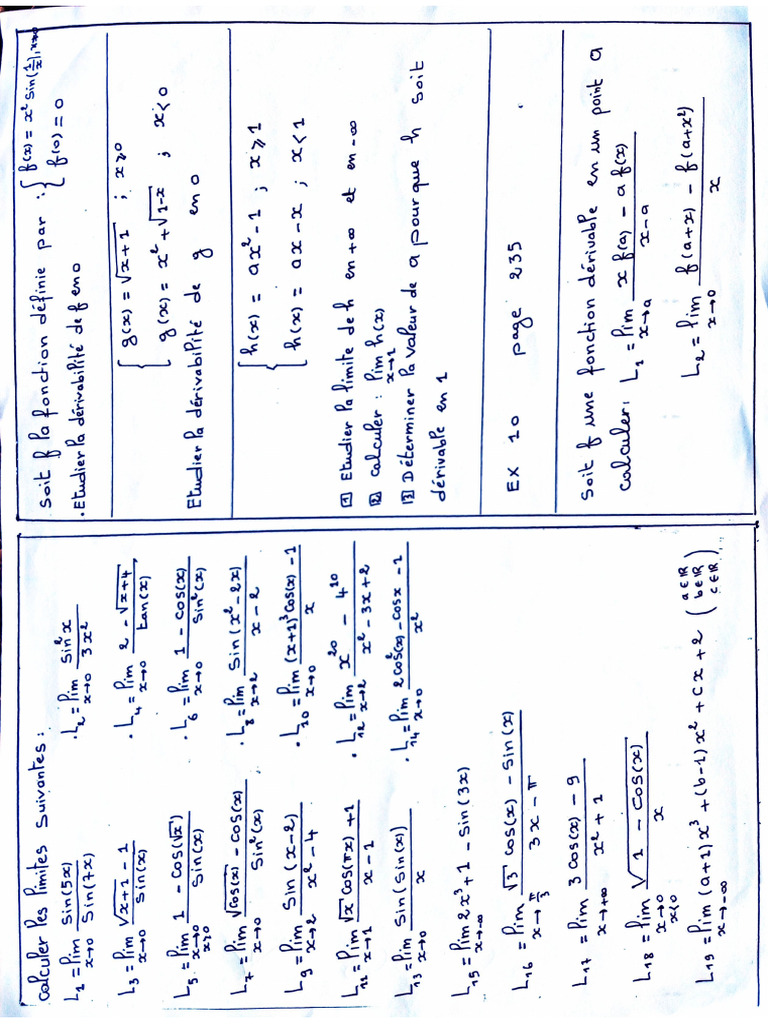 Calculer les limites suivantes :
L₁ = lim x→0 sin(5x) / sin(7x)
. L₂ = lim x→0 sin²x / 3x²
L₃ = lim x→0 (√(x+1) - 1) / sin(x)
. L₄ = lim x→0 (2 - √(x+4)) / tan(x)
L₅ = lim x→0 x≥0 (1 - cos(√x)) / sin(x)
. L₆ = lim x→0 (1 - cos(x)) / sin²(x)
L₇ = lim x→0 (√cos(x) - cos(x)) / sin²(x)
. L₈ = lim x→2 sin(x² - 2x) / (x - 2)
L₉ = lim x→2 sin(x-2) / (x² - 4)
. L₁₀ = lim x→0 ((x+1)³cos(x) - 1) / x
L₁₁ = lim x→1 (√x cos(πx) + 1) / (x - 1)
. L₁₂ = lim x→2 (x²⁰ - 4¹⁰) / (x² - 3x + 2)
L₁₃ = lim x→0 sin(sin(x)) / x
. L₁₄ = lim x→0 (2cos²(x) - cosx - 1) / x²
L₁₅ = lim x→-∞ 2x³ + 1 - sin(3x)
L₁₆ = lim x→π/3 (√3 cos(x) - sin(x)) / (3x - π)
L₁₇ = lim x→+∞ (3cos(x) - 9) / (x² + 1)
L₁₈ = lim x→0 x<0 √(1 - cos(x)) / x
L₁₉ = lim x→-∞ (a+1)x³ + (b-1)x² + cx + 2 (a∈ℝ b∈ℝ c∈ℝ)
soit f la fonction définie par : { f(x) = x² sin(1/x), x≠0
{ f(0) = 0
. Etudier la dérivabilité de f en 0
{ g(x) = √(x+1) ; x≥0
{ g(x) = x² + √(1-x) ; x<0
Etudier la dérivabilité de g en 0
{ h(x) = ax² - 1 ; x≥1
{ h(x) = ax - x ; x<1
1 Etudier la limite de h en +∞ et en -∞
2 calculer : lim x→1 h(x)
3 Déterminer la valeur de a pour que h soit
dérivable en 1
EX 10 page 235
Soit f une fonction dérivable en un point a
calculer: L₁ = lim x→a (x f(a) - a f(x)) / (x - a)
L₂ = lim x→0 (f(a+x) - f(a+x²)) / x